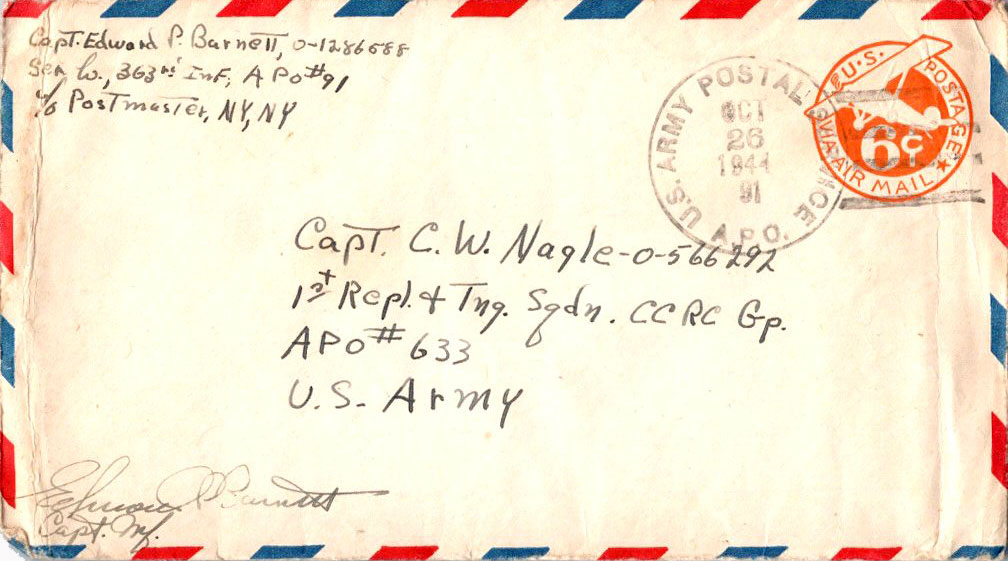 Capt. Edward P. Barnett, O-1286588
Ser. Co., 363rd Inf., APO #91
c/o Postmaster, NY, NY
U.S. ARMY POSTAL SERVICE
OCT
26
1944
91
A.P.O.
U.S. POSTAGE
6¢
VIA AIR MAIL
Capt. C. W. Nagle-O-566292
1st Repl. & Tng. Sqdn. CCRC Gp.
APO # 633
U.S. Army
Edward P Barnett
Capt. Inf.